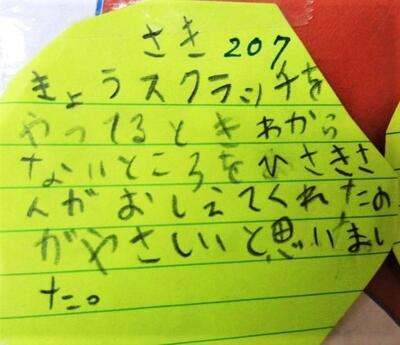 さき 207
きょうスクラッチを
やってるときわから
ないところをひさきさ
んがおしえてくれたの
がやさしいと思いまし
た。